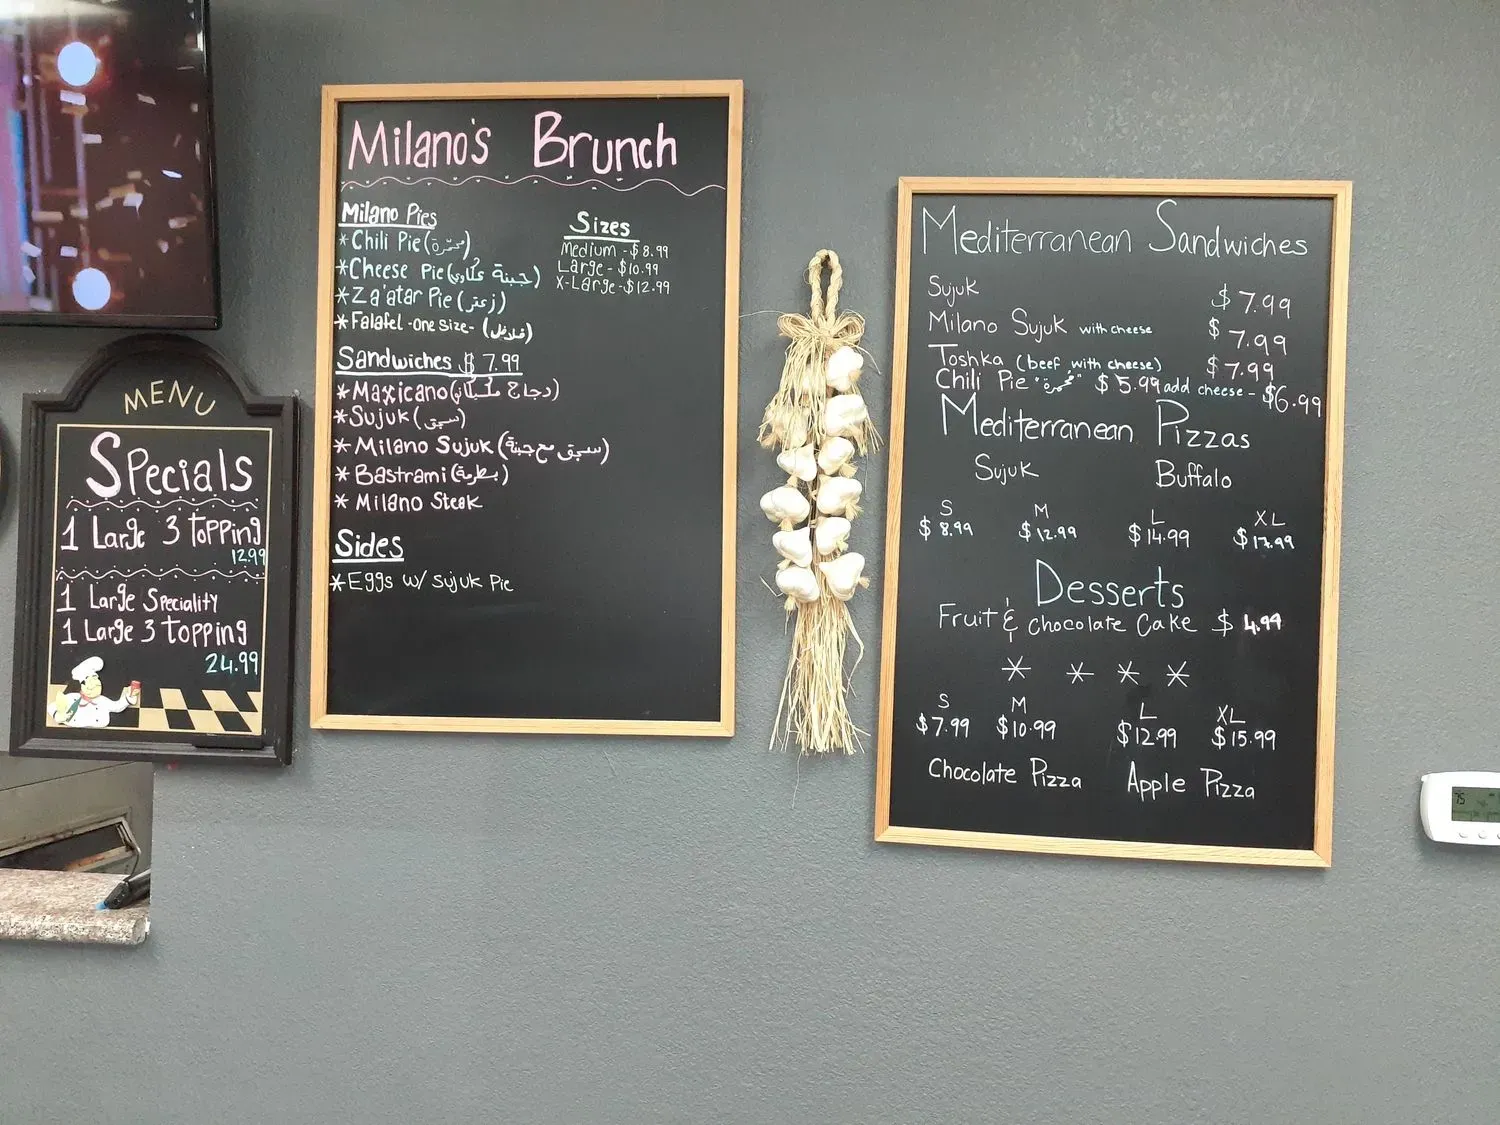 MENU
Specials
1 Large 3 topping
12.99
1 Large Speciality
1 Large 3 topping
24.99
Milano's Brunch
Milano Pies
* Chili Pie (محمّرة)
* Cheese Pie (جبنة عكاوي)
* Za'atar Pie (زعتر)
* Falafel -one size- (فلافل)
Sizes
Medium - $8.99
Large - $10.99
X-Large - $12.99
Sandwiches $ 7.99
* Maxicano (دجاج مكسيكان)
* Sujuk (سجق)
* Milano Sujuk (سجق مع جبنة)
* Bastrami (بسطرمة)
* Milano Steak
Sides
* Eggs w/ Sujuk Pie
Mediterranean Sandwiches
Sujuk $ 7.99
Milano Sujuk with cheese $ 7.99
Toshka (beef with cheese) $ 7.99
Chili Pie "محمرة" $ 5.99 add cheese - $6.99
Mediterranean Pizzas
Sujuk Buffalo
S M L XL
$ 8.99 $ 12.99 $ 14.99 $ 17.99
Desserts
Fruit & Chocolate Cake $ 4.99
* * * *
S M L XL
$7.99 $10.99 $12.99 $15.99
Chocolate Pizza Apple Pizza
75